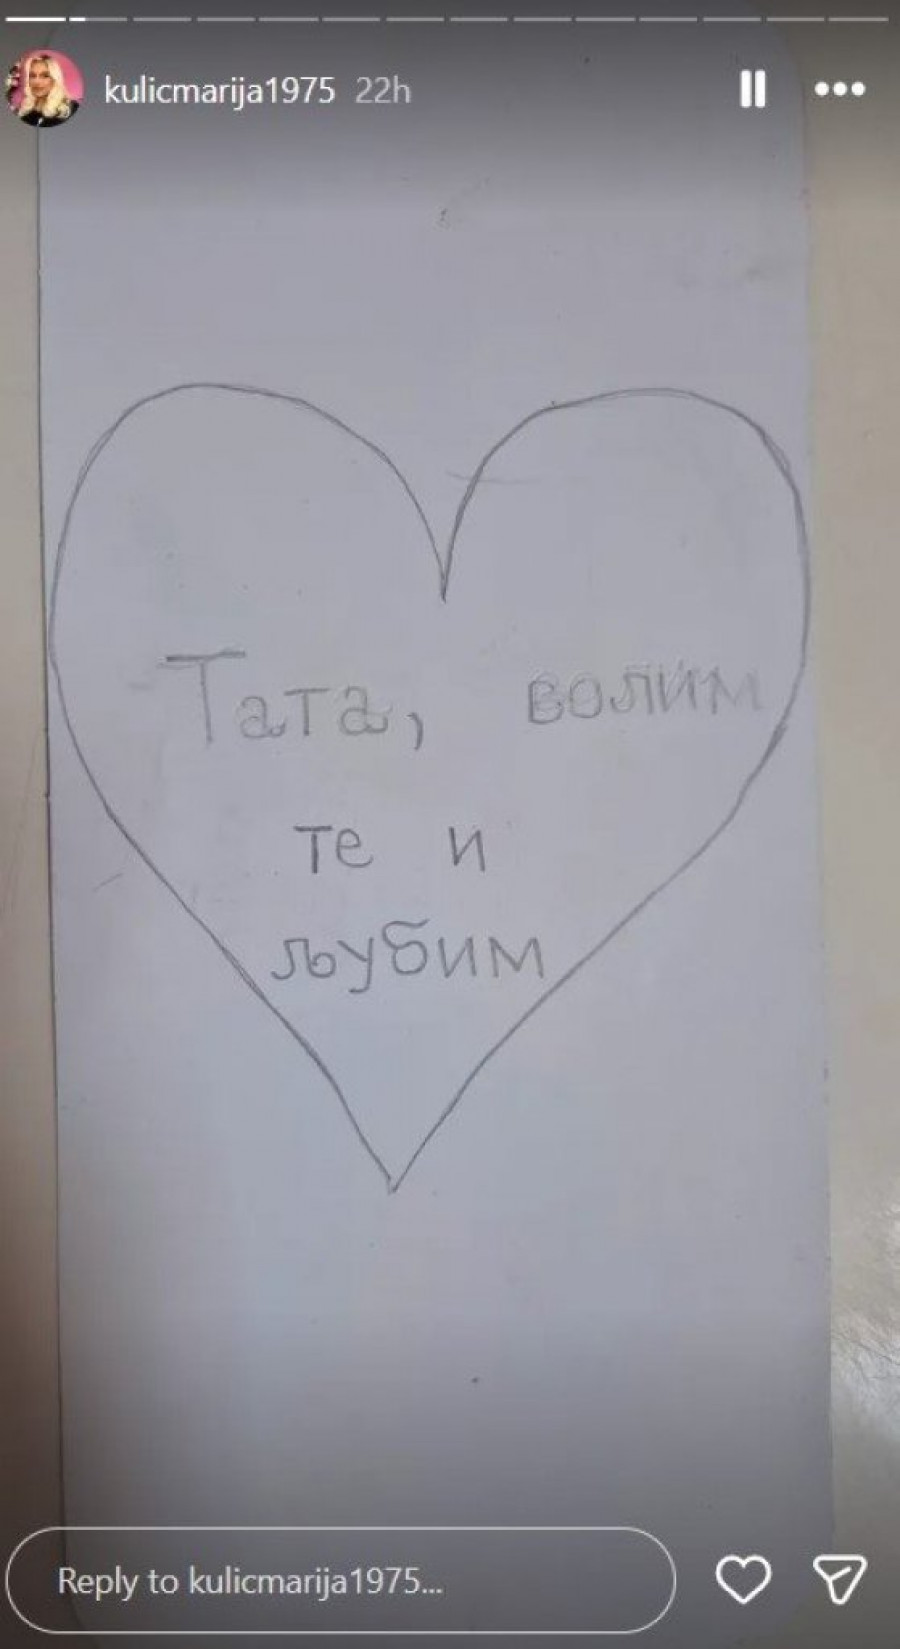 kulicmarija1975 22h
Тата, волим
те и
љубим
Reply to kulicmarija1975...